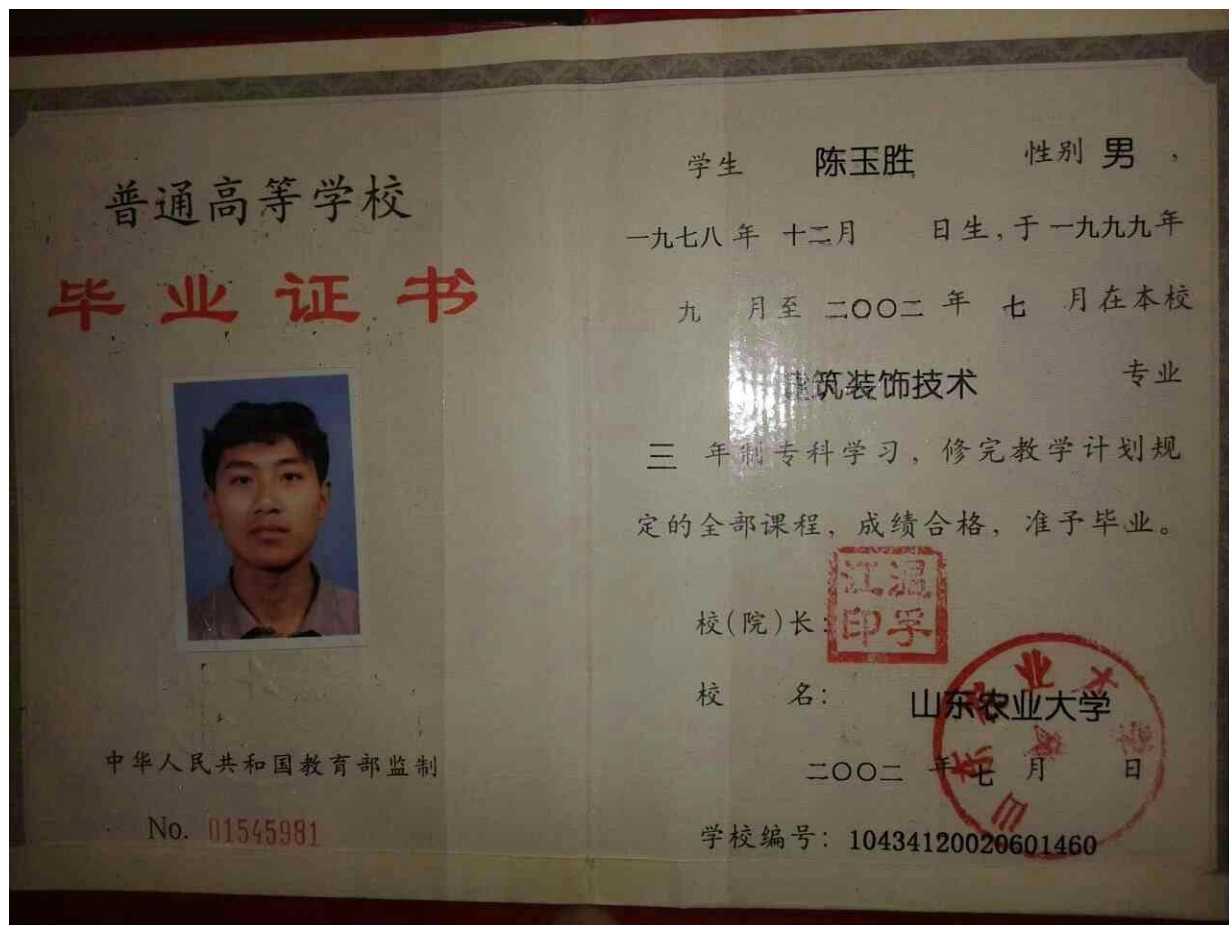 普通高等学校
毕业证书
中华人民共和国教育部监制
No. 01545981
学生 陈玉胜 性别 男，
一九七八年 十二月 日生，于一九九九年
九 月至 二〇〇二 年 七 月在本校
建筑装饰技术 专业
三 年制专科学习，修完教学计划规
定的全部课程，成绩合格，准予毕业。
校(院)长：
温孚江印
校 名： 山东农业大学
二〇〇二 年 七 月 日
学校编号：10434120020601460